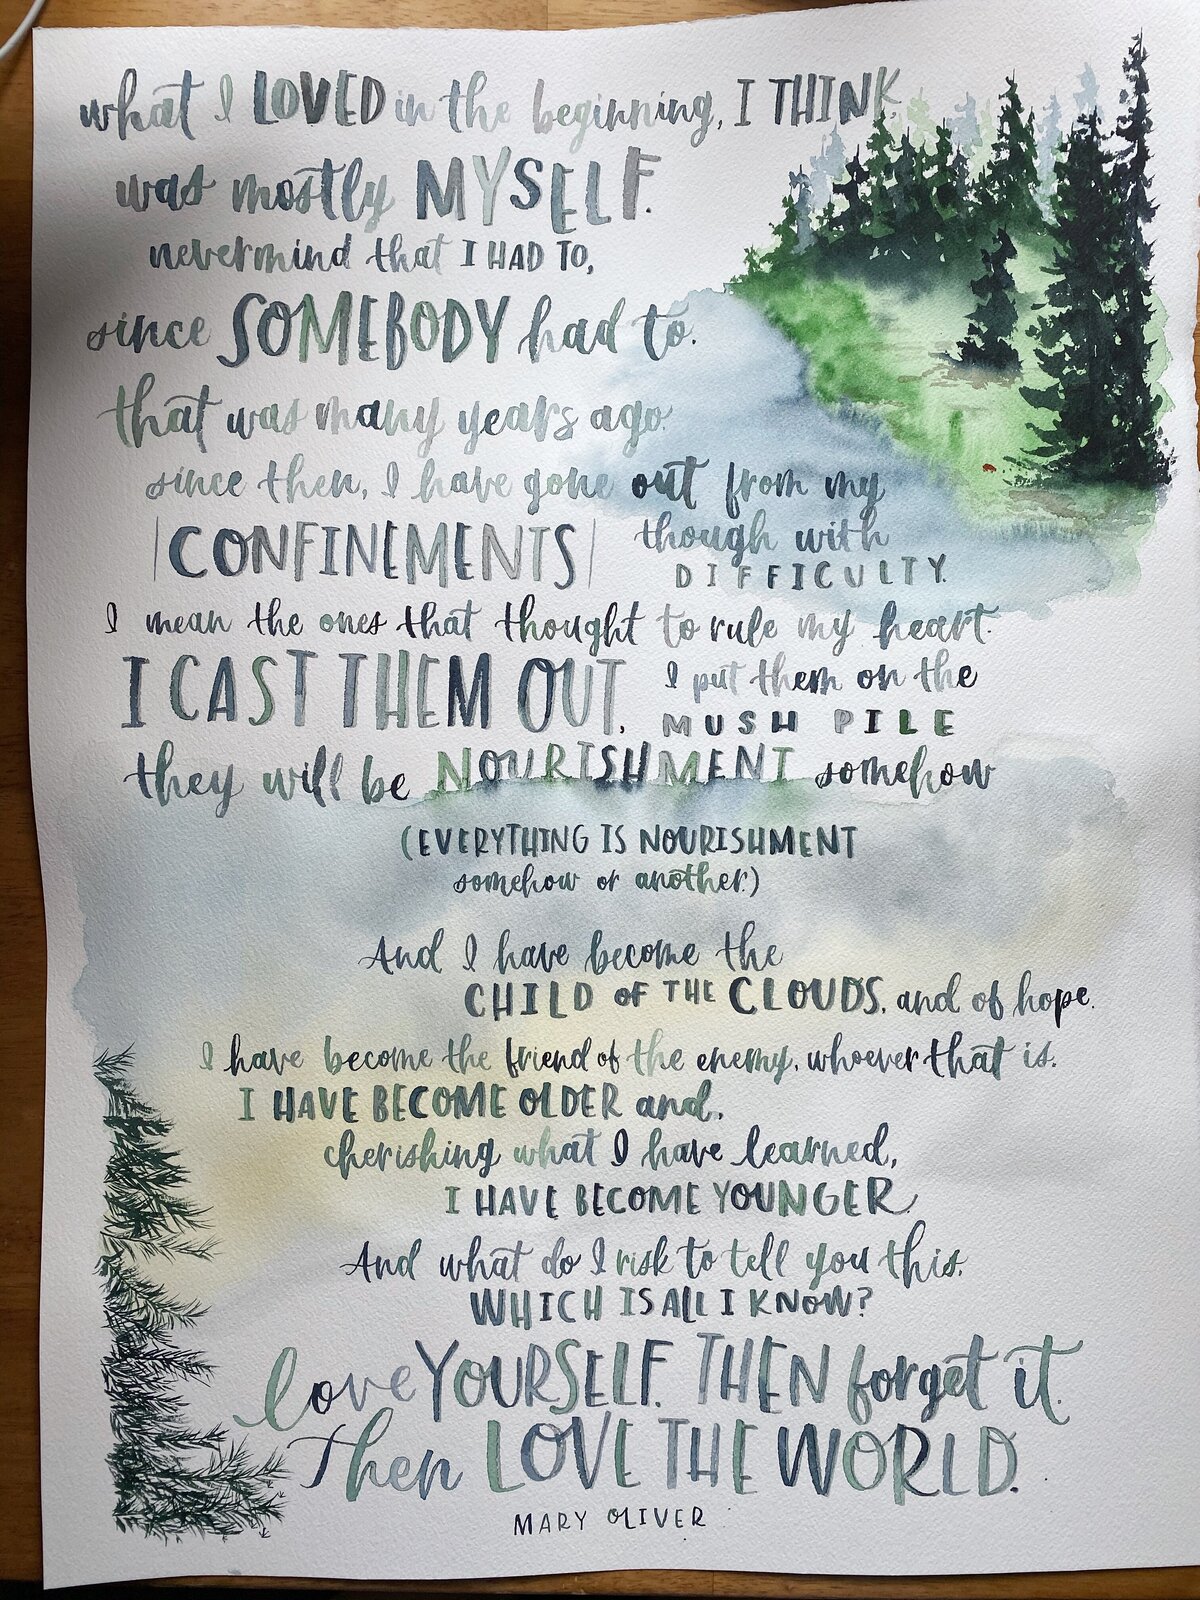 what I LOVED in the beginning, I THINK
was mostly MYSELF.
nevermind that I HAD TO,
since SOMEBODY had to.
that was many years ago.
since then, I have gone out from my
CONFINEMENTS
though with
DIFFICULTY.
I mean the ones that thought to rule my heart.
I CAST THEM OUT,
I put them on the
MUSH PILE
they will be NOURISHMENT somehow
(EVERYTHING IS NOURISHMENT
somehow or another.)
And I have become the
CHILD OF THE CLOUDS, and of hope.
I have become the friend of the enemy, whoever that is.
I HAVE BECOME OLDER and,
cherishing what I have learned,
I HAVE BECOME YOUNGER.
And what do I risk to tell you this,
WHICH IS ALL I KNOW?
love YOURSELF. THEN forget it.
Then LOVE THE WORLD.
MARY OLIVER